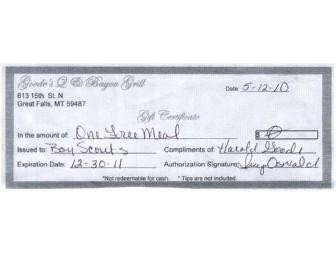 Goode's Q & Bayou Grill
613 15th St. N
Great Falls, MT 59487
Date: 5-12-10
Gift Certificate
In the amount of: One Free Meal $ 0
Issued to: Boy Scouts Compliments of: Harold Goode
Expiration Date: 12-30-11 Authorization Signature: Oswald
*Not redeemable for cash. * Tips are not included